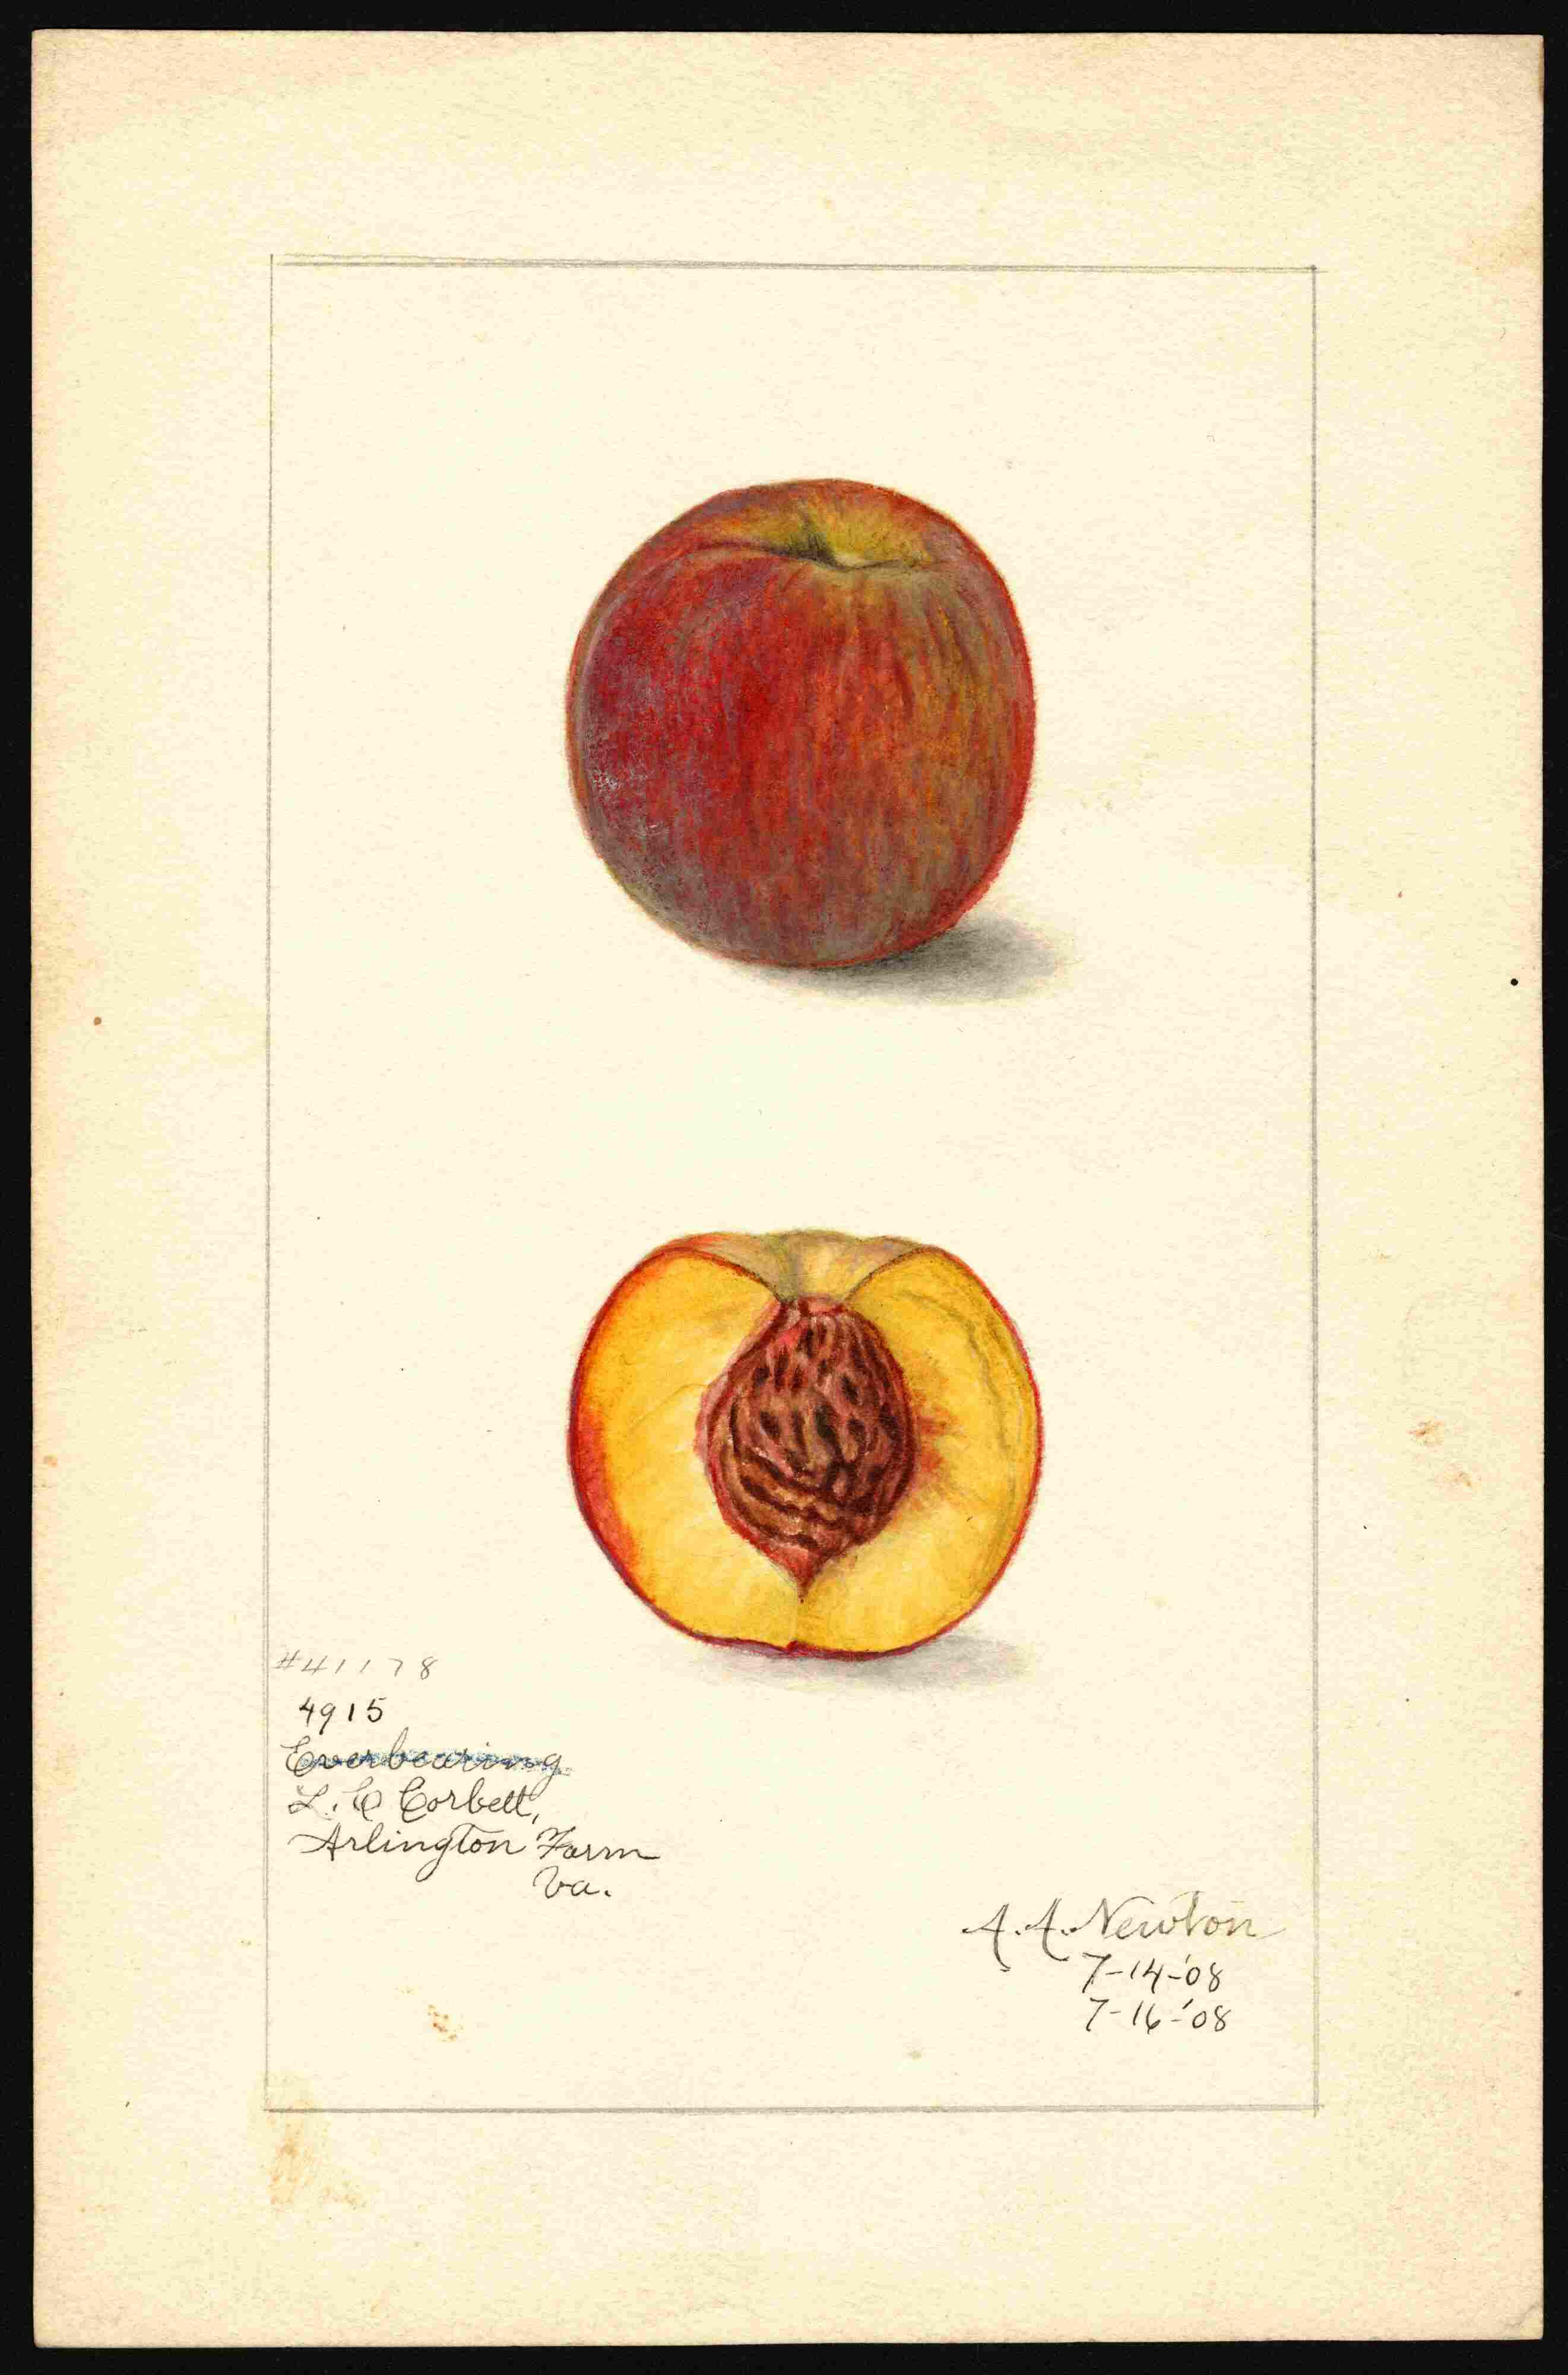 #41178
4915
Everbearing
L. C Corbett,
Arlington Farm
Va.
A. A. Newton
7-14-'08
7-16-'08